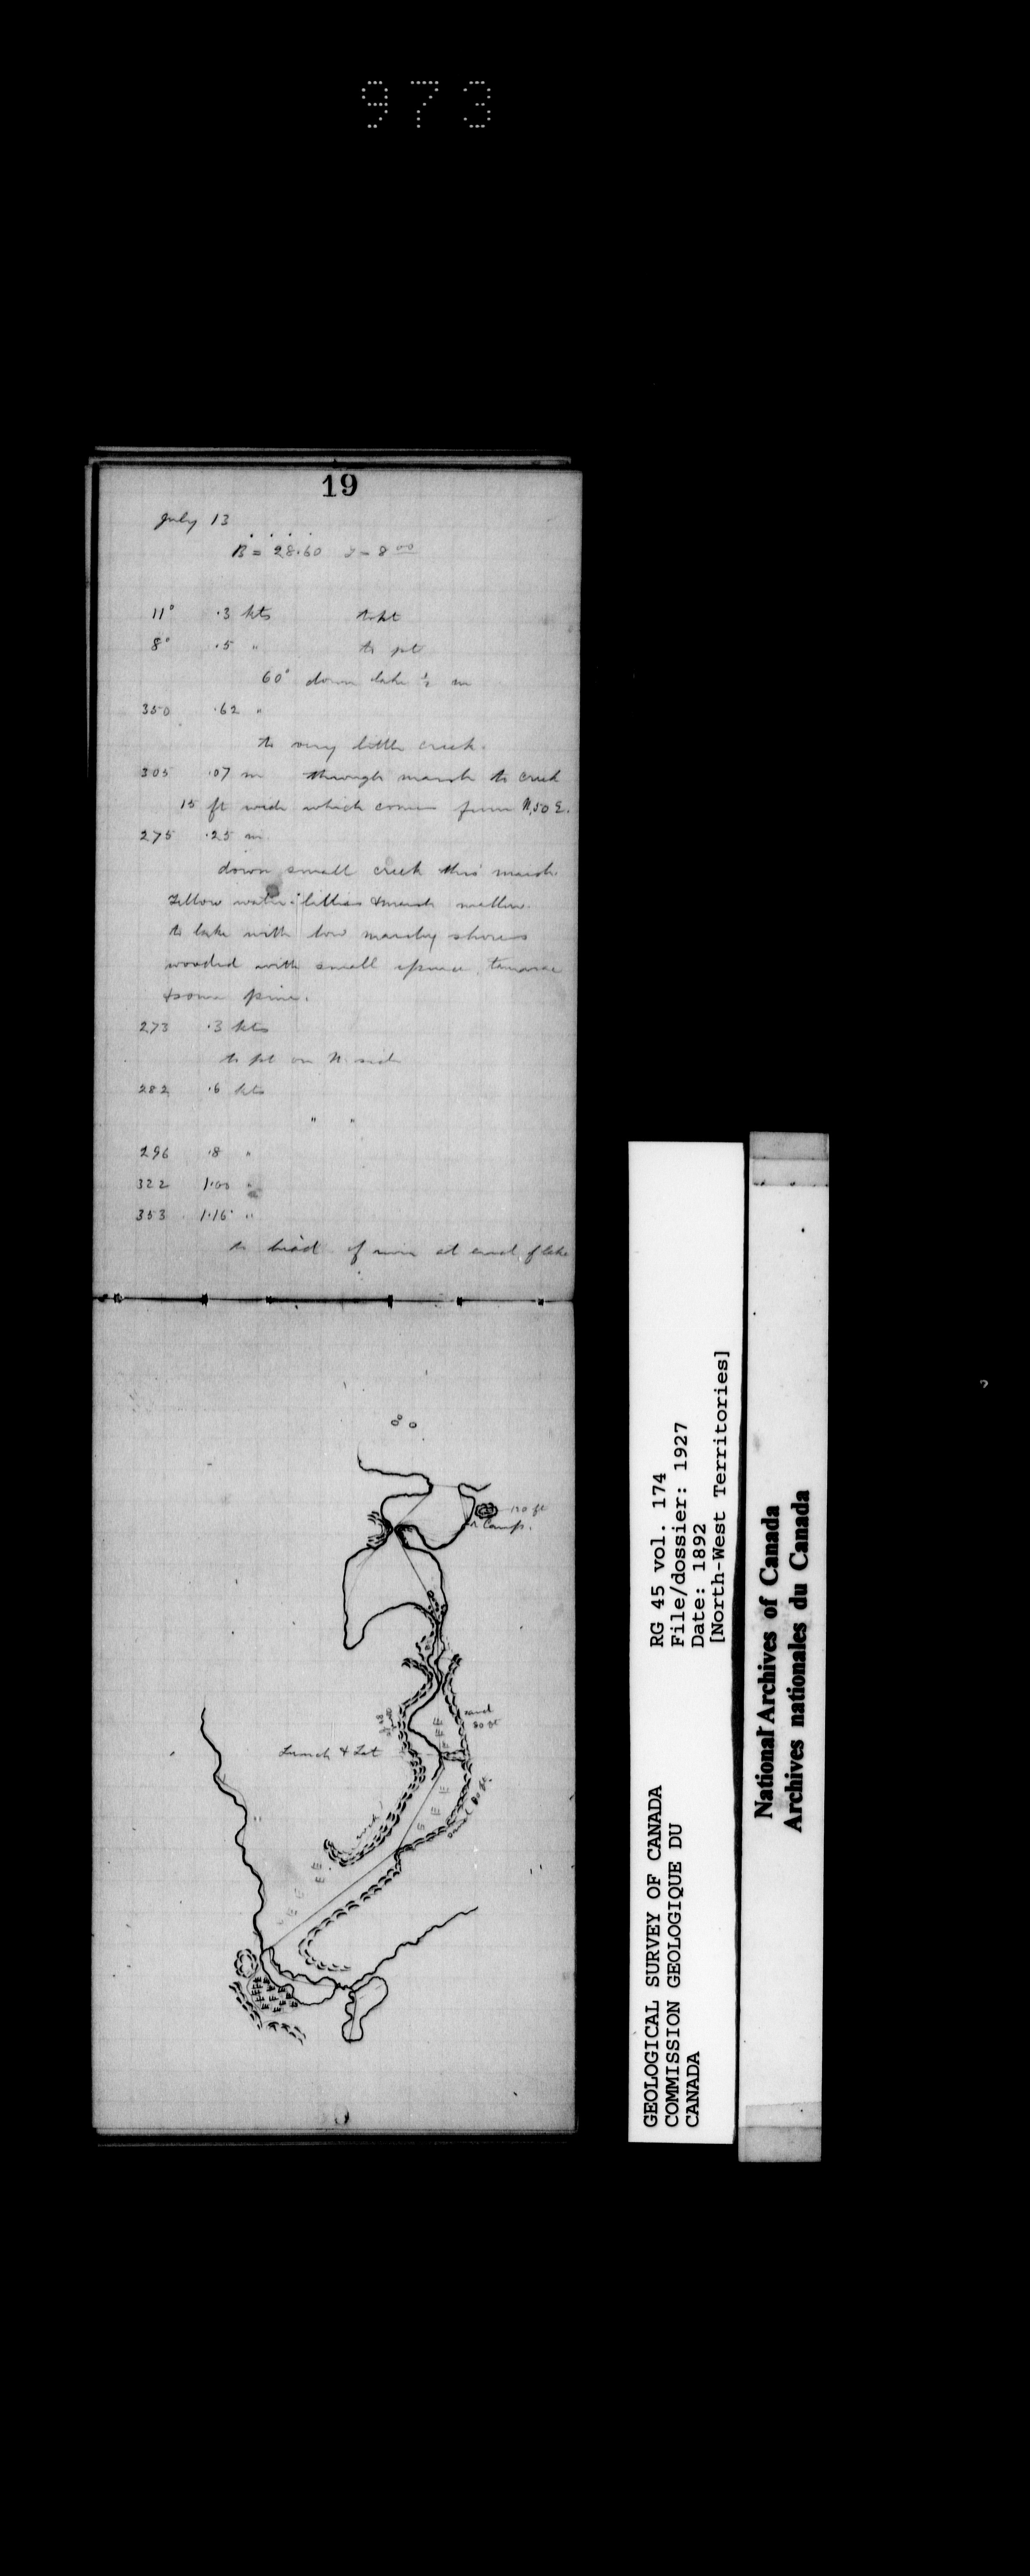 973
19
July 13
B = 28.60 8 00
11° .3 kts to pt
8° .5 " to pt
60° down lake ½ m
350 .62 "
to very little creek.
305 .07 m through marsh to creek
15 ft wide which comes from N,50 E.
275 .25 m
down small creek thro' marsh
Yellow water-lillies & marsh mallow
to lake with low marshy shores
wooded with small spruce, tamarac
& some pine.
273 .3 kts
to pt on N. side
282 .6 kts
" "
296 .8 "
322 1.00 "
353 1.16 "
to head of river at end of lake
Camp.
sand
80 ft
Lunch & Lat
sand 80 ft.
GEOLOGICAL SURVEY OF CANADA
COMMISSION GEOLOGIQUE DU
CANADA
RG 45 vol. 174
File/dossier: 1927
Date: 1892
[North-West Territories]
National Archives of Canada
Archives nationales du Canada